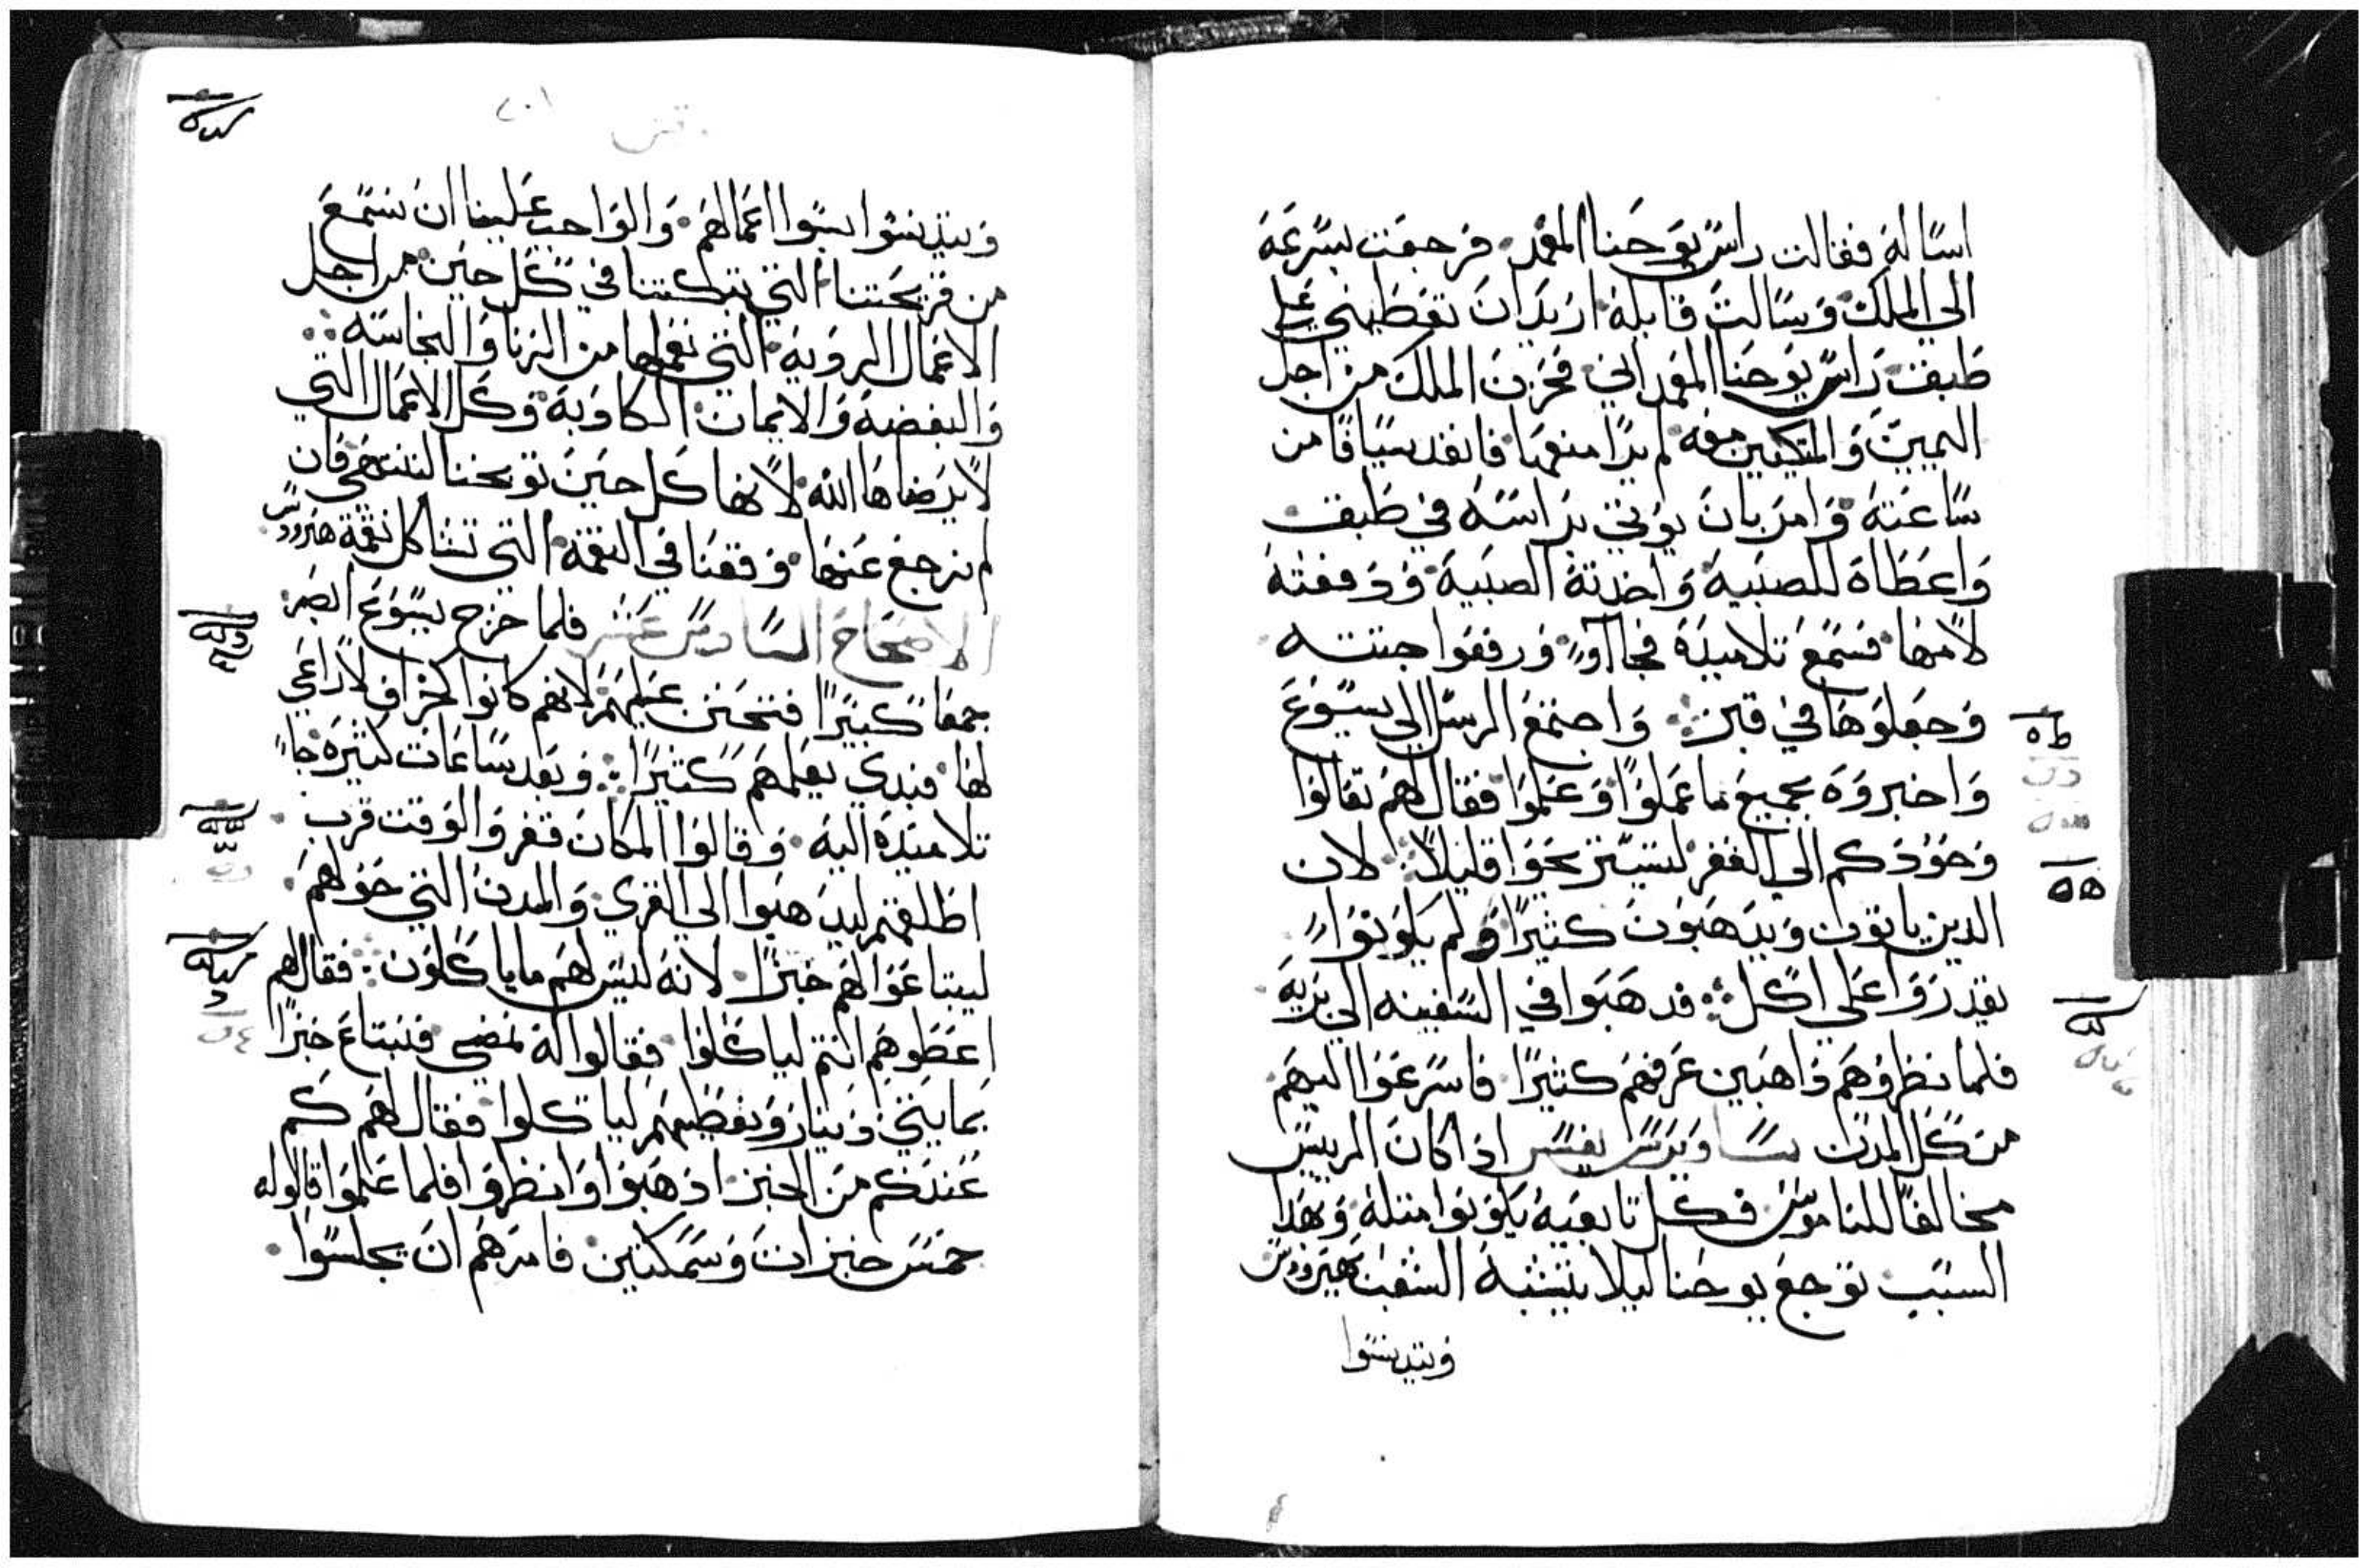 اساله فقالت راس يوحنا المعمد فرجعت بسرعة
الي الملك وسالت قايلة اريد ان تعطيني علي
طبق راس يوحنا المعمداني فحزن الملك من اجل
اليمين والمتكيين معه لم يرد منعها فانفد سيافا من
ساعته وامر بان يوتي براسه في طبق
واعطاه للصبية واخدته الصبية ودفعته
لامها فسمع تلاميذه فجاآوا ورفعوا جتته
وجعلوها في قبر واجتمع الرسل الي يسوع
واخبروه بجميع ما عملوا وعلموا فقال لهم تعالوا
وحودكم الي القفر لنستريحوا قليلا لان
الدين ياتون ويدهبون كثيرا ولم يكونوا
يقدروا علي اكل فدهبوا في السفينه الي برية
فلما نظروهم داهبين عرفهم كثيرا فاسرعوا اليهم
من كل المدن ساويرس يفسر اذا كان الرييس
مخالفا للناموس فكل تابعيه يكونوا متله وهدا
السبب توجع يوحنا ليلا يتشبه الشعب بهيرودس
ويتدنسوا
وبتدنسوا بسوا اعمالهم والواجب علينا ان نستمع
من قريحتنا التي تبكتنا في كل حين من اجل
الاعمال الرديه التي نعملها من الزنا والنجاسه
والبغضه والايمان الكادبه وكل الاعمال التي
لا يرضاها الله لانها كل حين توبخنا لننتهي فان
لم نرجع عنها وقعنا في النقمة التي تشاكل نقمة هيرودس
الاصحاح السادس عشر فلما خرج يسوع ابصر
جمعا كبيرا فتحنن عليهم لانهم كانوا كخراف لا راعي
لها فبدي يعلمهم كتيرا وبعد ساعات كتيرة جا
تلاميده اليه وقالوا المكان قفر والوقت قرب
اطلقهم ليدهبوا الي القري والمدن التي حولهم
ليبتاعوا لهم خبزا لانه ليس لهم ما ياكلون فقال لهم
اعطوهم انتم لياكلوا فقالوا له نمضي فنبتاع خبزا
بمايتي دينار ونعطيهم لياكلوا فقال لهم كم
عندكم من الخبز ادهبوا وانظروا فلما علموا قالوا له
خمس خبزات وسمكتين فامرهم ان يجلسوا